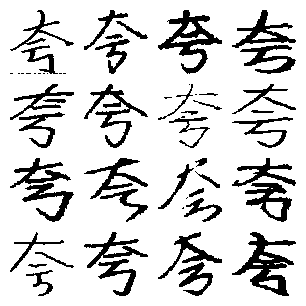 夸夸夸夸
夸夸夸夸
夸夸夸夸
夸夸夸夸